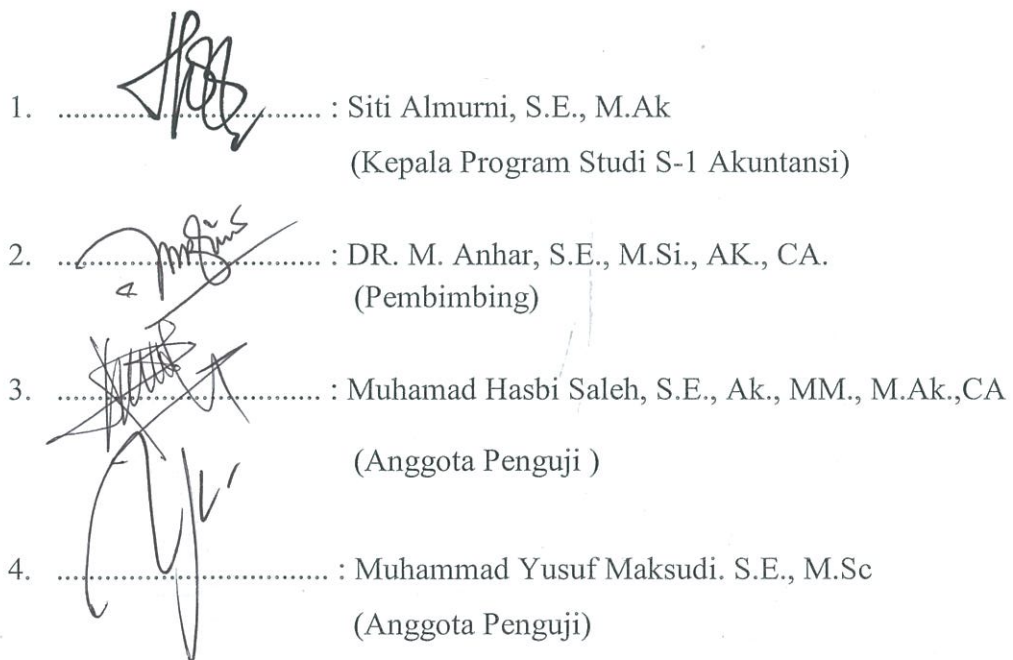 1. ................................... : Siti Almurni, S.E., M.Ak
(Kepala Program Studi S-1 Akuntansi)
2. ................................... : DR. M. Anhar, S.E., M.Si., AK., CA.
(Pembimbing)
3. ................................... : Muhamad Hasbi Saleh, S.E., Ak., MM., M.Ak.,CA
(Anggota Penguji )
4. ................................... : Muhammad Yusuf Maksudi. S.E., M.Sc
(Anggota Penguji)